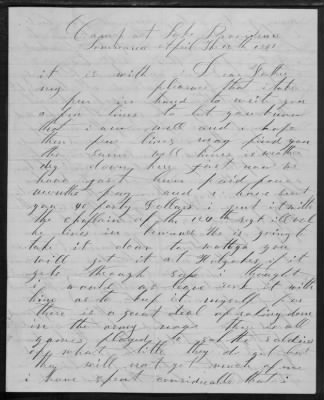 Camp at Lake Providence
Louisiana April The 10th 1863
it is with Dear Father
my pleasure that i take
pen in hand to writ you
a few lines to let you know
that i am well and i hope
these few lines may find you
the same well times is
dry down here just now we
have just been paid four
months pay and i have sent
you 40 forty Dollars i sent it with
the chaplain of the rgt ill vol
he lives in he is going to
take it down to you
will get it at if it
gets through safe i thought
i would as leave send it with
him as to kep it myself for
there is a great deal of done
in the army now they is all
games played to get the soldiers
off what little they do get but
they will not get much of mine
i have spent considerable that i